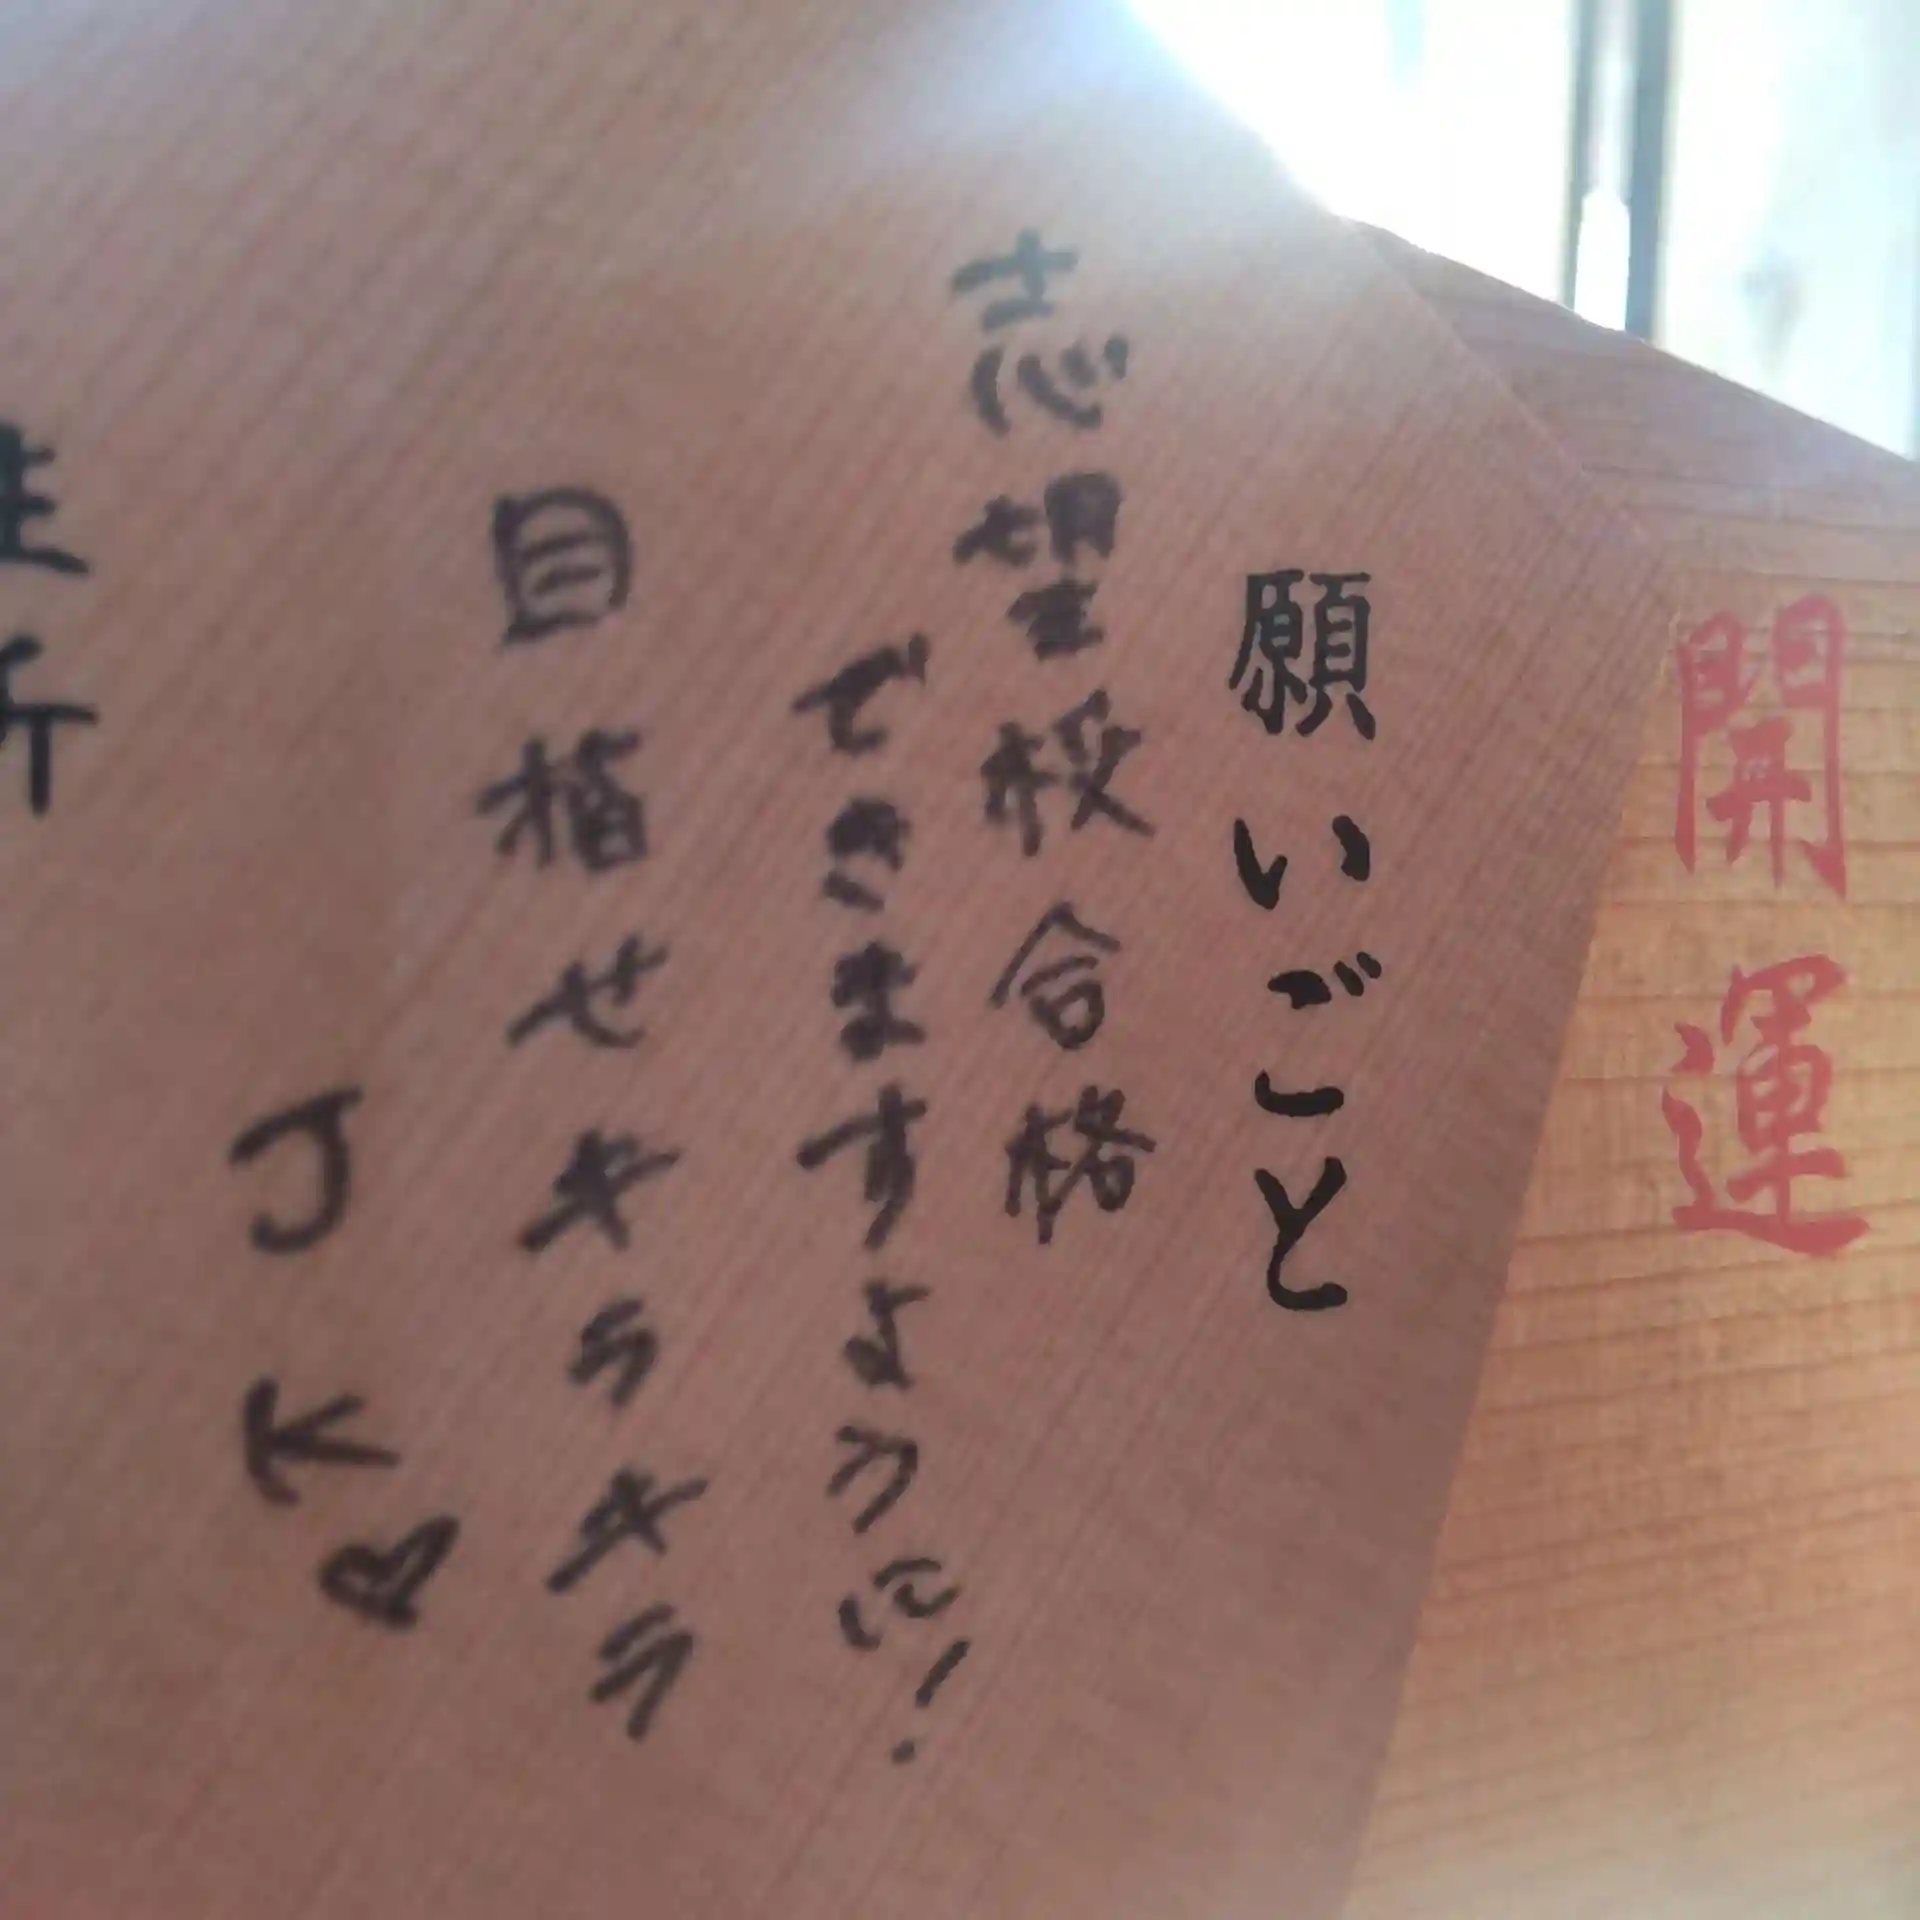 開運
願いごと
志望校合格
できますように！
目指せキラキラ
JK♡